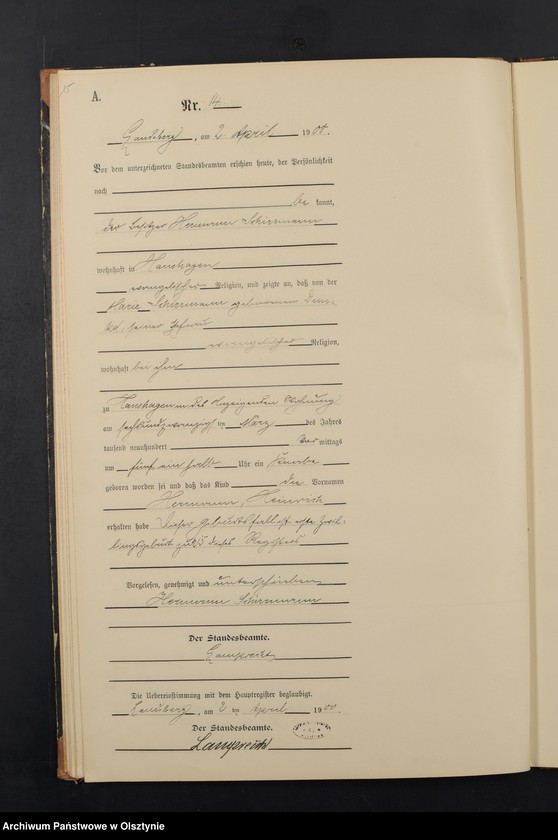 15
A.
Nr. 14
Landsberg, am 2 April 1900.
Vor dem unterzeichneten Standesbeamten erschien heute, der Persönlichkeit
nach
be kannt,
der Besitzer Hermann Schirrmann
wohnhaft in Hanshagen
evangelischer Religion, und zeigte an, daß von der
Marie Schirrmann geborenen
seiner Ehefrau
evangelischer Religion,
wohnhaft bei ihm
zu Hanshagen in des Anzeigenden Wohnung
am sechsundzwanzigsten März des Jahres
tausend neunhundert Vor mittags
um fünf ein halb Uhr ein Knabe
geboren worden sei und daß das Kind die Vornamen
Hermann, Heinrich
erhalten habe. Dieser Geburtsfall ist erste Zwil-
lingsgeburt zu dieses Registers
Vorgelesen, genehmigt und unterschrieben
Hermann Schirrmann
Der Standesbeamte.
Lamprecht
Die Uebereinstimmung mit dem Hauptregister beglaubigt.
Landsberg, am 2 ten April 1900.
Der Standesbeamte.
Lamprecht
Archiwum Państwowe w Olsztynie